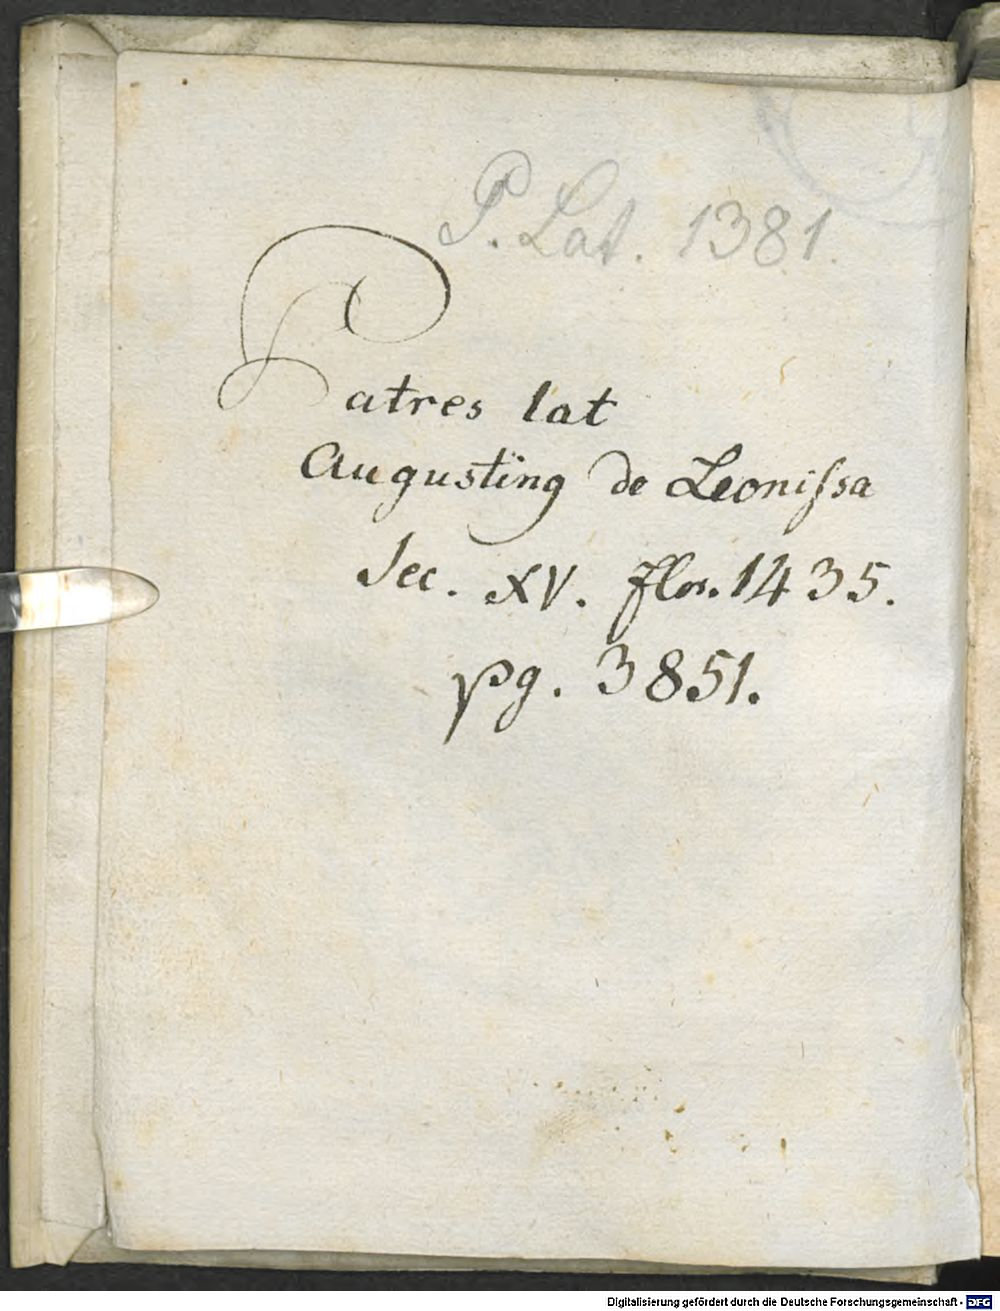 P. Lat. 1381.
Patres lat
Augustinꝯ de Leoniſsa
Sec. XV. flor. 1435.
pg. 3851.
Digitalisierung gefördert durch die Deutsche Forschungsgemeinschaft - DFG